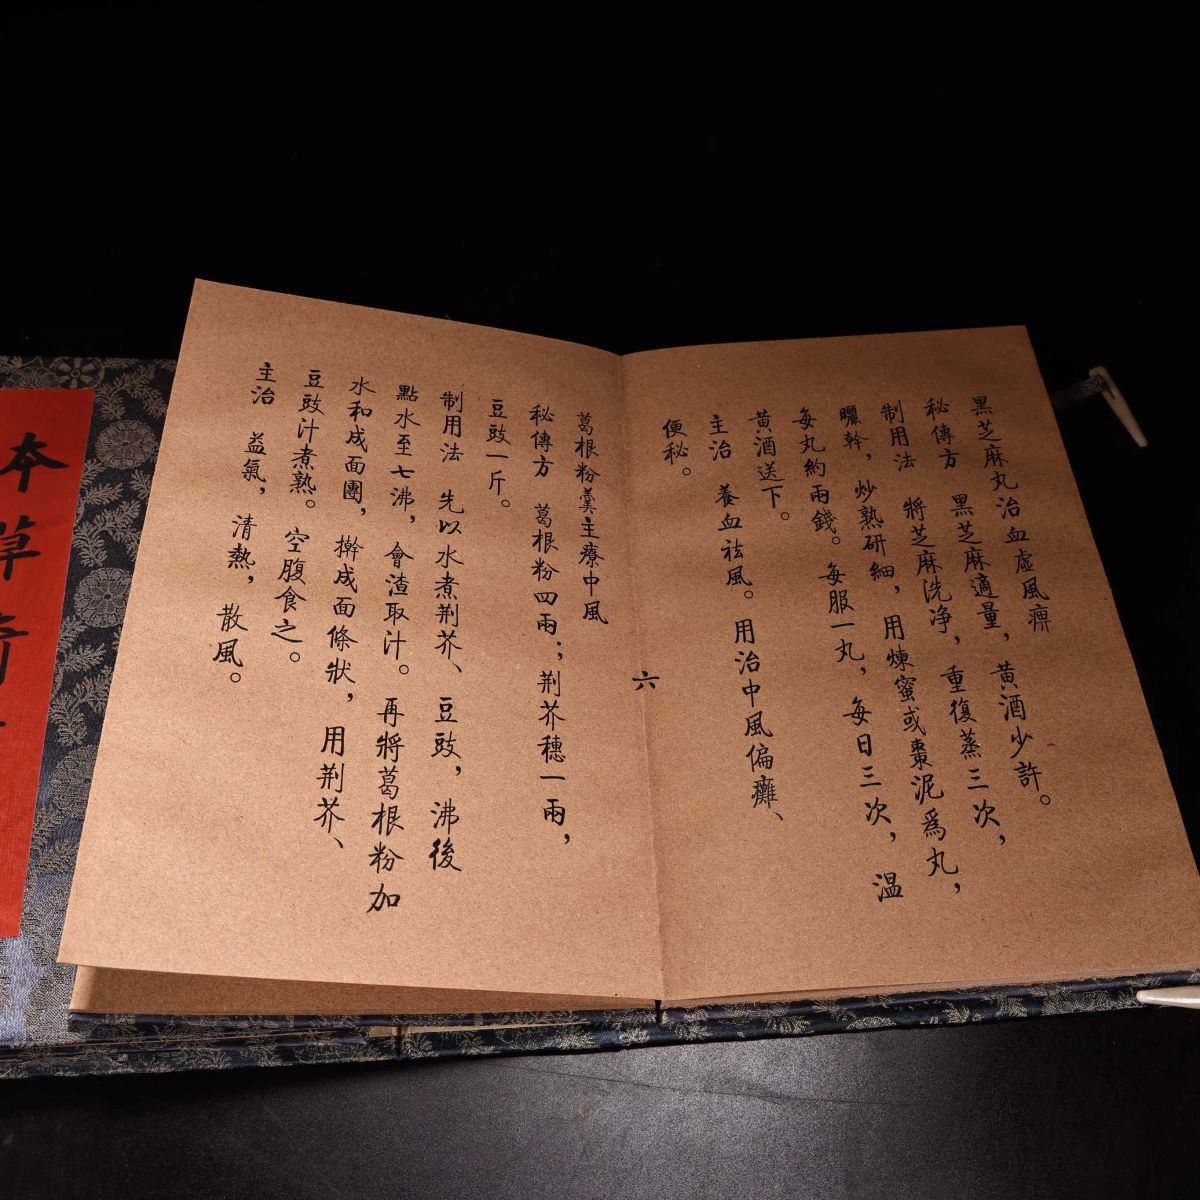 黑芝麻丸治血虛風痹
秘傳方 黑芝麻適量，黄酒少許。
制用法 將芝麻洗净，重復蒸三次，
曬幹，炒熟研細，用煉蜜或棗泥爲丸，
每丸約兩錢。每服一丸，每日三次，温
黄酒送下。
主治 養血祛風。用治中風偏癱、
便秘。
六
葛根粉羹主療中風
秘傳方 葛根粉四兩；荆芥穗一兩，
豆豉一斤。
制用法 先以水煮荆芥、豆豉，沸後
點水至七沸，會渣取汁。再將葛根粉加
水和成面團，擀成面條狀，用荆芥、
豆豉汁煮熟。空腹食之。
主治 益氣，清熱，散風。
本草